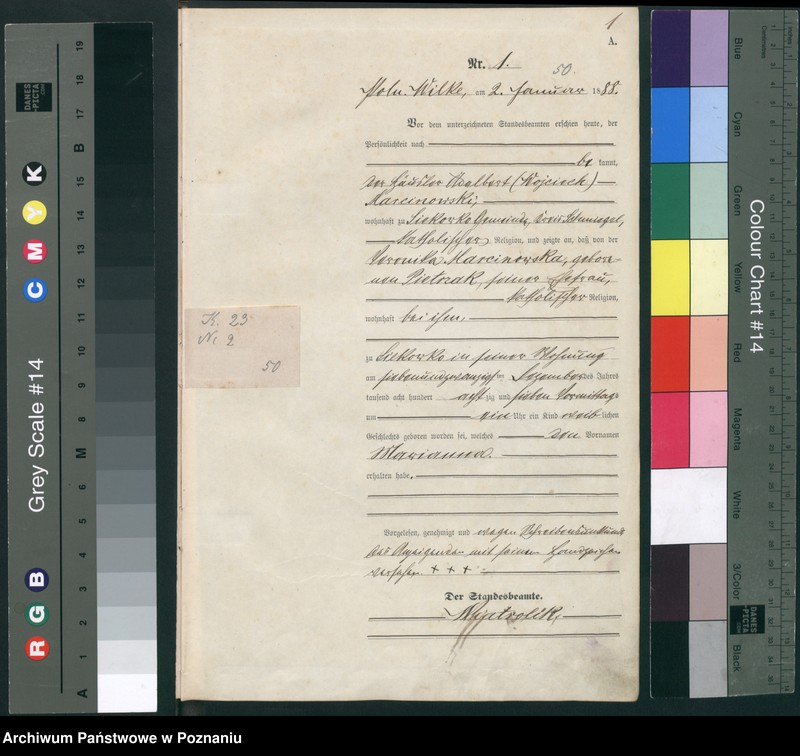 1
A.
Nr. 1.
50.
Poln. Wilke, am 2. Januar 1888.
Vor dem unterzeichneten Standesbeamten erschien heute, der
Persönlichkeit nach
be kannt,
der Häusler Adalbert (Wojciech)
Marcinowski,
wohnhaft zu Siekowko Gemeinde, Kreis Schmiegel,
katholischer Religion, und zeigte an, daß von der
Veronika Marcinowska, gebore-
nen Pietrzak, seiner Ehefrau,
katholischer Religion,
wohnhaft bei ihm,
zu Siekowko in seiner Wohnung
am siebenundzwanzigsten Dezember des Jahres
tausend acht hundert achtzig und sieben Vormittags
um ein Uhr ein Kind weib lichen
Geschlechts geboren worden sei, welches den Vornamen
Marianna
erhalten habe.
Vorgelesen, genehmigt und wegen Schreibensunkunde
des Anzeigenden mit seinem Handzeichen
versehen. + + +
Der Standesbeamte.
K. 23
Nr. 2
50
Grey Scale #14
DANES
-PICTA
.COM
A 1 2 3 4 5 6 M 8 9 10 11 12 13 14 15 B 17 18 19
R G B
C M Y K
Colour Chart #14
Blue
Cyan
Green
Yellow
Red
Magenta
White
3/Color
Black
Centimetres
Inches
DANES
-PICTA
.COM
Archiwum Państwowe w Poznaniu